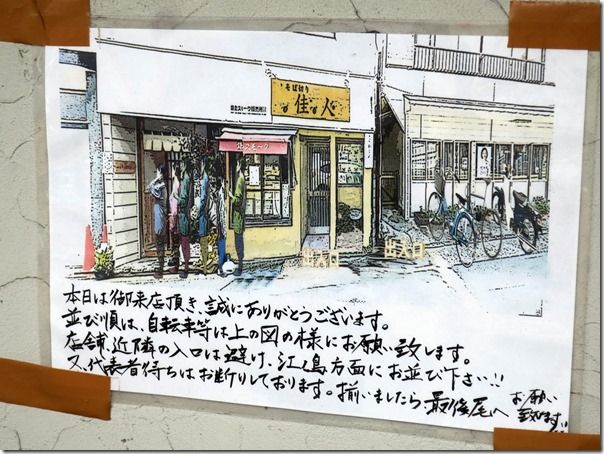 そば切り
佳人
出入口
出入口
本日は御来店頂き、誠にありがとうございます。
並び順は、自転車等は上の図の様にお願い致します。
店舗、近隣の入口は避け、江ノ島方面にお並び下さい!!
又、代表者待ちはお断りしております。揃いましたら最後尾へ
お願い
致します!!